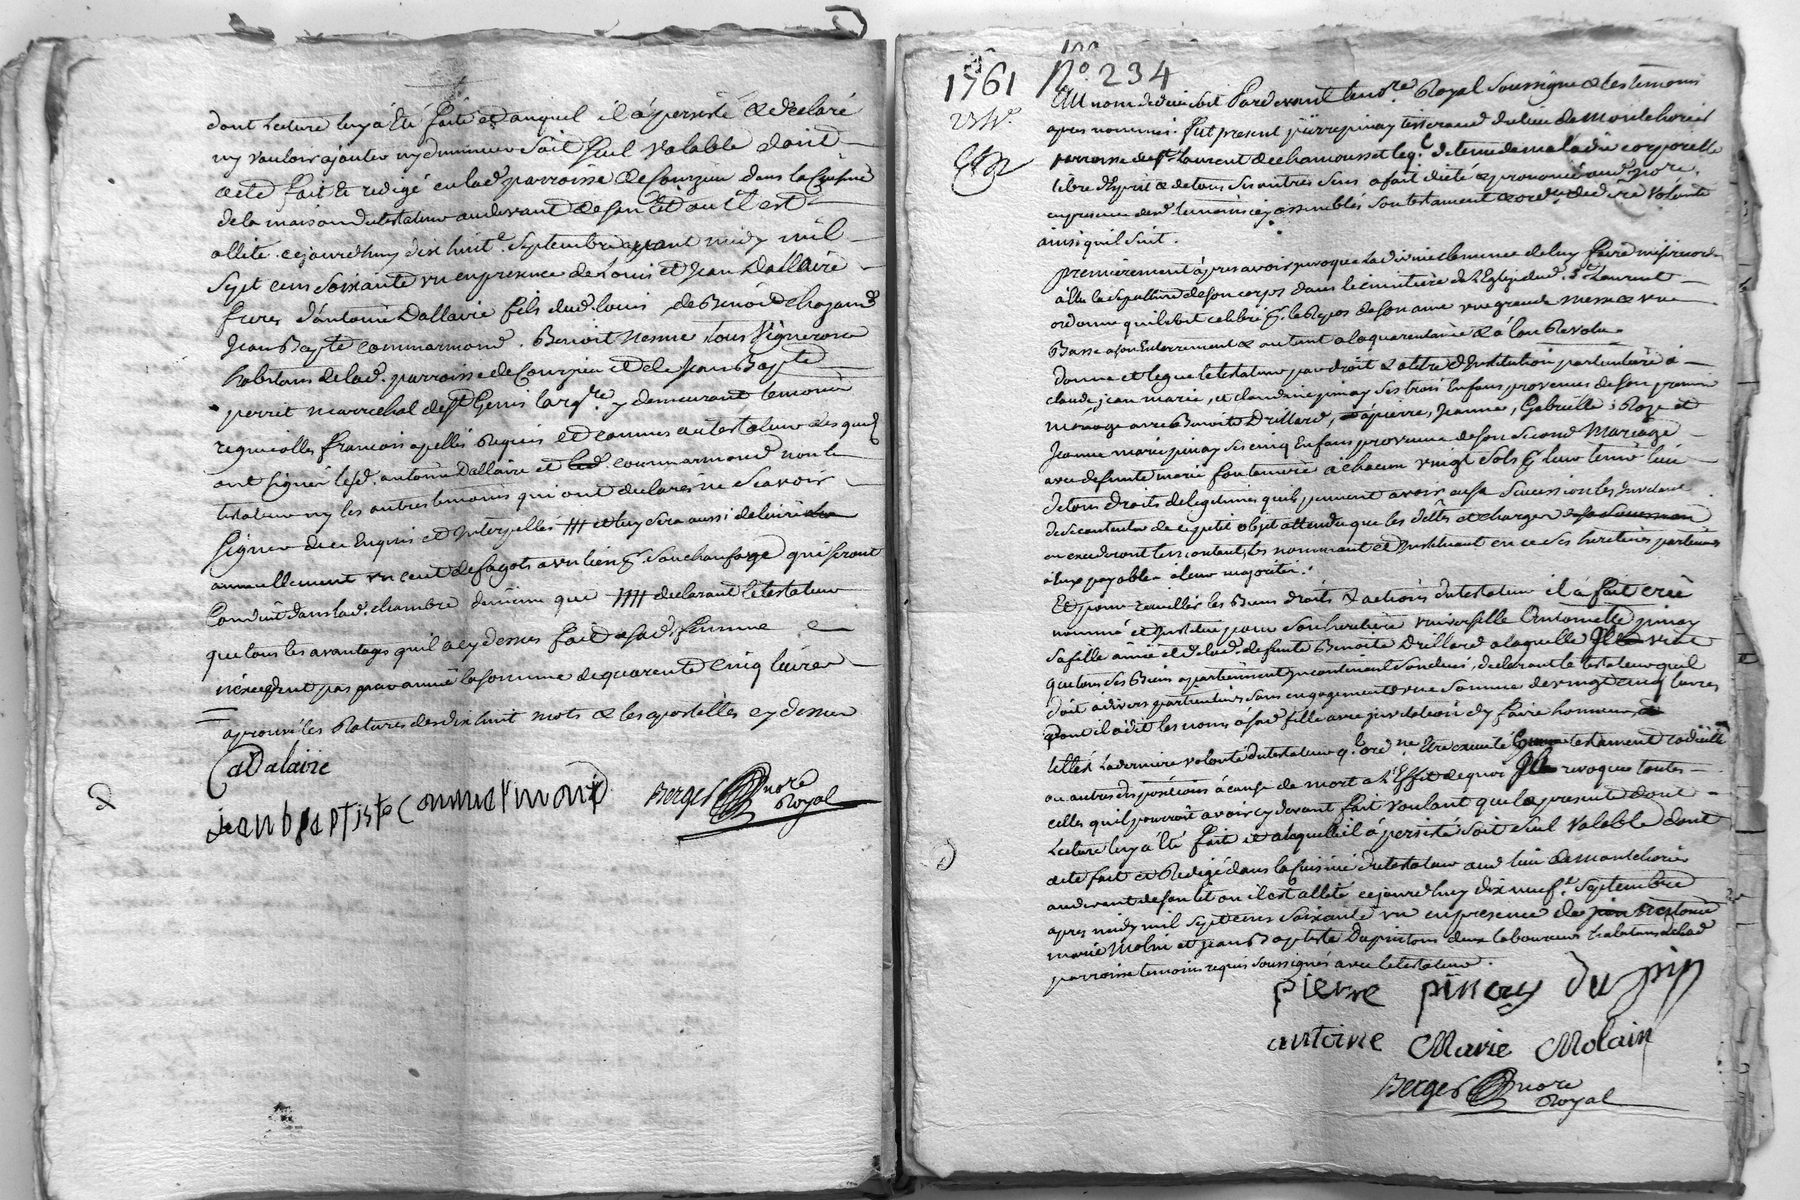 dont Lecture luy a Eté faite et auquel il a persisté & declaré
ny vouloir ajouter ny diminuer soit seul valable dont
acte fait & redigé en lad. parroisse de Courzieu dans la Cuisine
de la maison du testateur au devant de son Lit ou il est
allité. cejourdhuy dix huite. Septembre avant midy mil
Sept cens Soixante un en presence de Louis et Jean Dallaire
freres d'antoine Dallaire fils dud. Louis de Benoid
Jean Bapte commarmond. Benoit tous Vignerons
habitans de lad. parroisse de Courzieu et de Jean Bapte
perret marechal de St Genis larg. y demeurant temoins
requis et connus au testateur des quels
ont signés lesd. antoine Dallaire et commarmond non le
testateur ny les autres temoins qui ont declarés ne Scavoir
signer de ce Enquis et Interpellés //// et luy sera aussi delivré
annuellement un cent de fagots a un lien pr. Son chaufage qui seront
Conduit dans lad. chambre de même que //// declarant le testateur
que tous les avantages qu'il a cy dessus fait a sad. femme
n'excedent pas par année la somme de quarente cinq livres
aprouvé les Ratures des dix huit mots & les apostilles cy dessus
aDalaire
jean baptiste Commarmond
Berger nore
Royal
1761 No. 234
Au nom de dieu soit Pardevant le nore. Royal Soussigné & les temoins
apres nommés. fut present pierre pinay tisserand du lieu de Montchorier
parroisse de St. Laurent de chamousset leql. detenu de maladie corporelle
libre d'Esprit & de tous ses autres sens a fait dicté & prononcé aud. nore.
en presence desd. temoins cy assemblés son testament & ordre. de dre. volonté
ainsi qu'il suit.
premierement apres avoir invoqué la divine clemence de luy faire misericorde
a Elu la sepulture de son corps dans le cimitière de l'Eglise dud. St. Laurent
ordonne qu'il soit celebré pr. le Repos de son ame une grande messe & une
Basse a son Enterrement & autant a la quarentaine & a l'an Revolu
donne et legue le testateur par droit & titre d'Institution particuliere a
claude, jean marie, et claudine pinay ses trois Enfans provenus de son premier
mariage avec Benoite Drillard, a pierre, Jeanne, Gabrielle, Roze et
Jeanne marie pinay ses cinq Enfans provenus de son Second Mariage
avec defunte marie fontaniere a chacun vingt sols pr. leur tenir lieu
de tous droits de legitimes quils peuvent avoir en sa Succession les Invitant
de se contenter de ce petit objet attendu que les dettes et charges de sa Succession
en excederont le montant, les nommant et Instituant en ce ses heritiers particuliers
a Eux payable a leur majorité.
Et pour recueillir les Biens droits & actions du testateur il a fait crée
nommé et Institué pour son heritiere universelle Antoinette pinay
sa fille ainée et de lad. defunte Benoite Drillard a laquelle il veut
que tous ses Biens apartiennent incontinant son deces, declarant le testateur qu'il
doit a divers particuliers sans engagement une Somme de vingt cinq livres
dont il a dit les noms a sad. fille avec invitation d'y faire honneur,
telle est la derniere volonté du testateur ql. ordne. Etre executé testament codicille
ou autres dispositions a cause de mort a l'Effet de quoi il revoque toutes
celles qu'il pourroit avoir cy devant fait voulant que la presente dont
Lecture luy a Eté faite et a laquelle il a persisté soit seul Valable dont
acte fait et Redigé dans la Cuisine du testateur aud. lieu de montchorier
au devant de son Lit ou il est allité cejourdhuy dix neufe. Septembre
apres midy mil sept cens Soixante un en presence de antoine
marie Molin et Jean Baptiste Dupin tous deux laboureurs habitans de lad.
parroisse temoins requis soussignés avec le testateur.
pierre pinay du pin
antoine Marie Molain
Berger nore
Royal